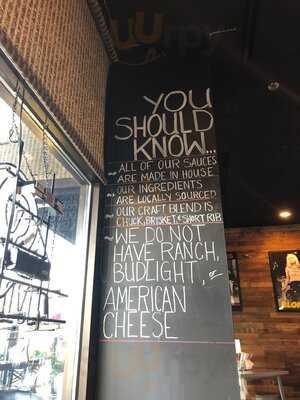 YOU
SHOULD
KNOW...
~ ALL OF OUR SAUCES
ARE MADE IN HOUSE
~ OUR INGREDIENTS
ARE LOCALLY SOURCED
~ OUR CRAFT BLEND IS
CHUCK, BRISKET, & SHORT RIB
~ WE DO NOT
HAVE RANCH,
BUDLIGHT, or
AMERICAN
CHEESE